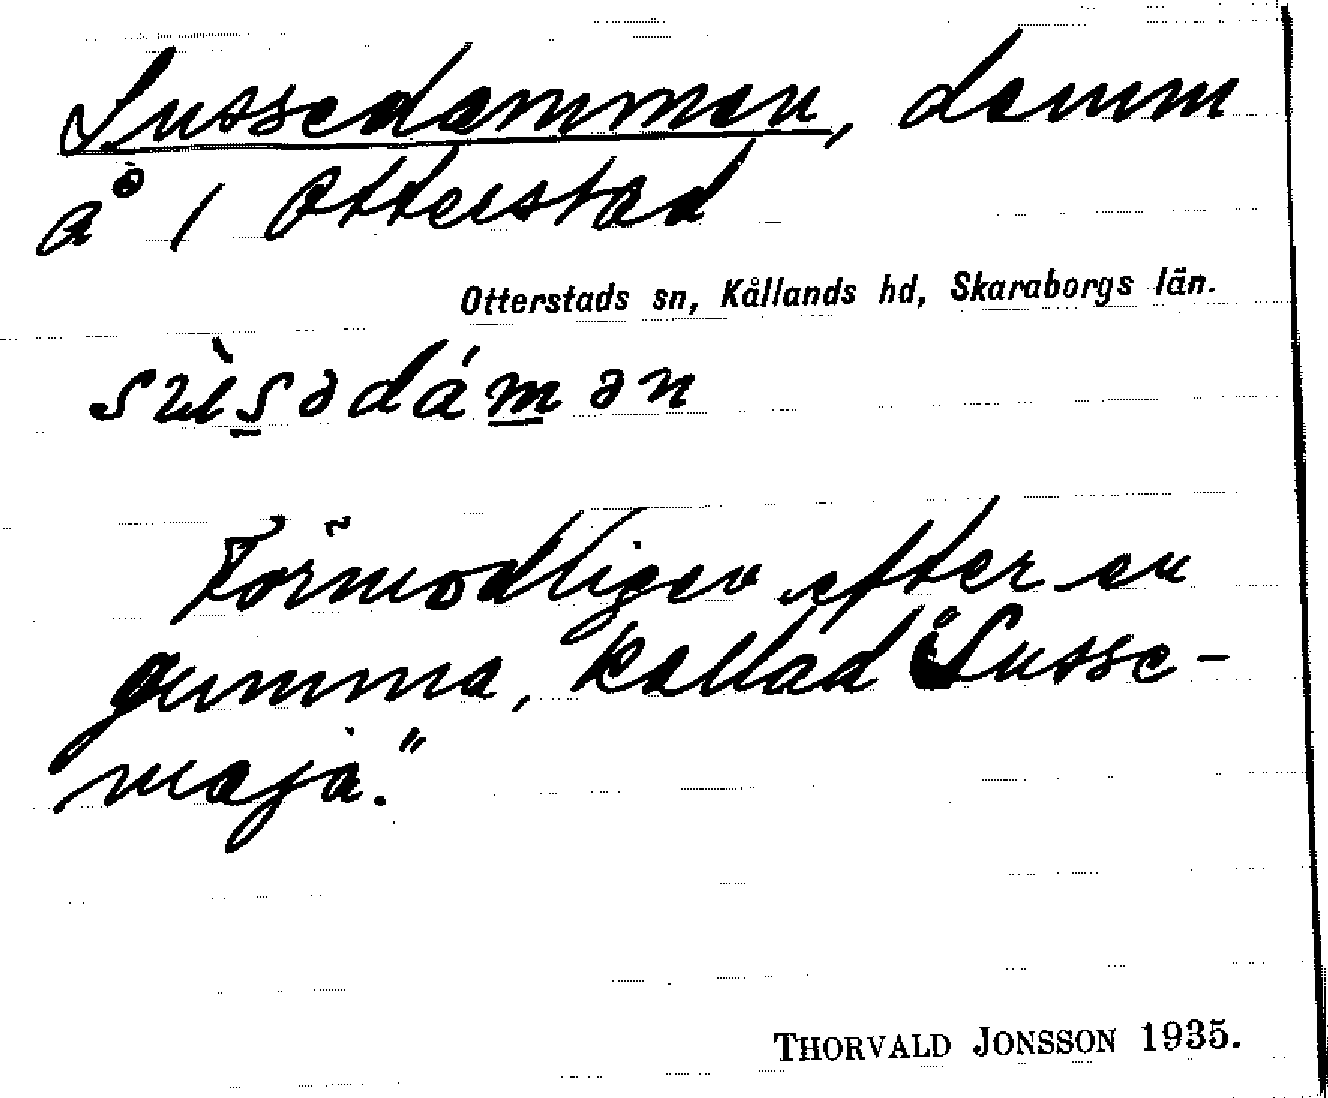 Sussedammen, damm
å 1 Otterstad
Otterstads sn, Kållands hd, Skaraborgs län.
sùs̲ədám̲ən
Förmodligen efter en
gumma, kallad "Susse-
maja."
THORVALD JONSSON 1935.